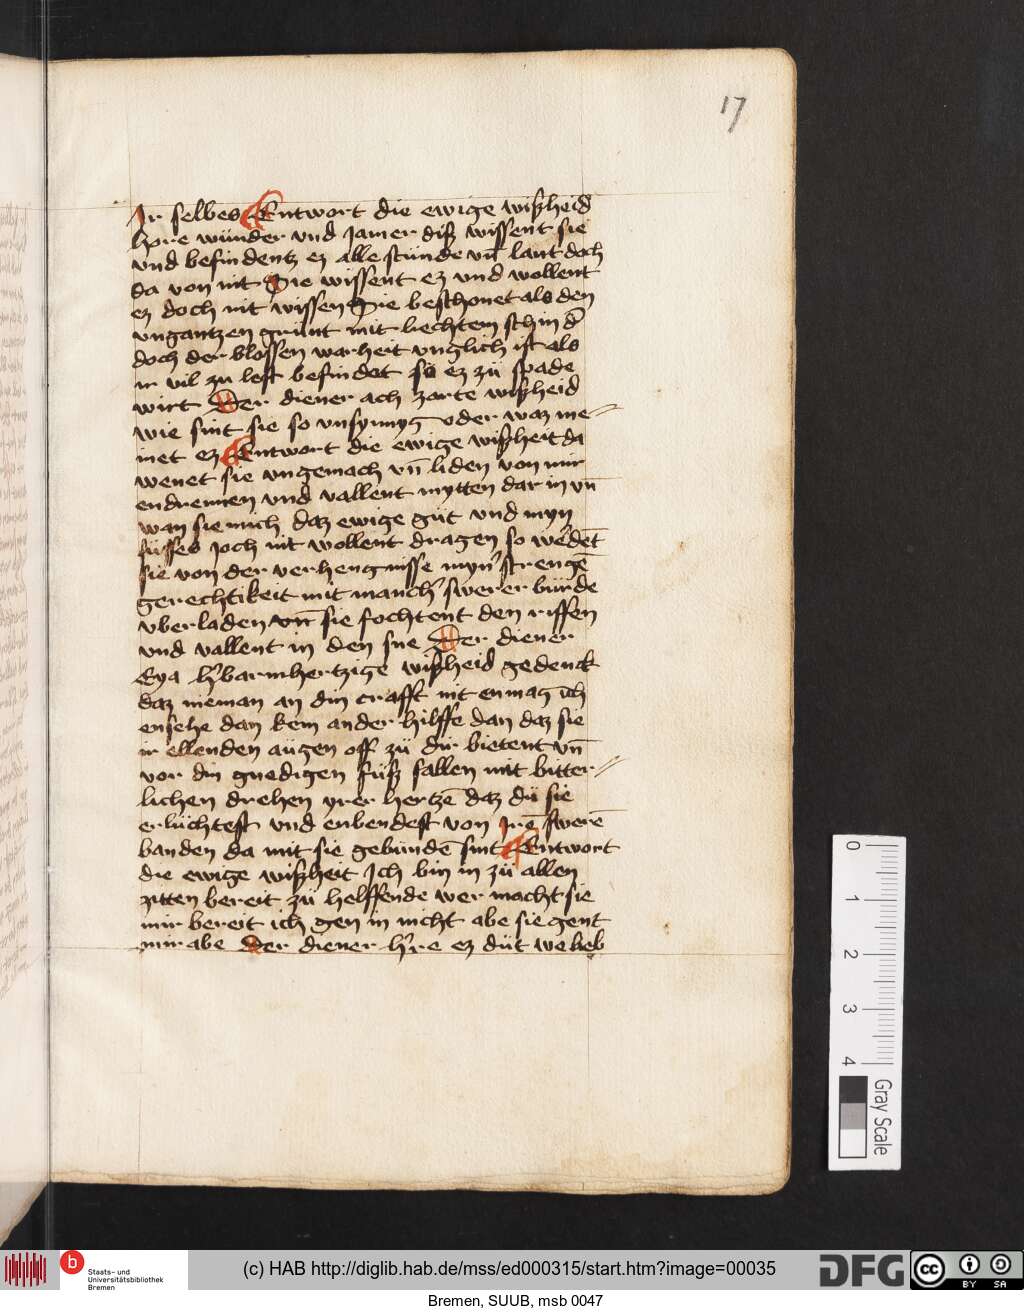 17
Ir selbes Entwort die ewige wißheid
hore wünder vnd Jamer diß wissent sie
vnd befindentz ez alle stünde vn̄ lant doch
da von nit Sie wissent ez vnd wollent
ez doch nit wissen Sie beschonet als den
vngantzen grünt mit liechtem schin d̄
doch der blossen warheit vnglich ist als
ir vil zu lest befindet so ez zü spade
wirt Der diener ach zarte wißheid
wie sint sie so vnsynnyg oder waz me⸗
inet ez Entwort die ewige wißheit da
wenet sie vngemach vn̄ liden von mir
endrennen vnd vallent mytten dar in vn̄
wan sie mich daz ewige güt vnd myn
süsses Joch nit wollent dragen so werdet̄
sie von der verhengnisse myn̾ strengē
gerechtikeit mit manch̾ swerer bürde
vberladen vn̄ sie fochtent den riffen
vnd vallent in den sne Der diener
Eya h̾barmhertzige wißheid gedenck
daz nieman an din crafft nit enmag ich
ensehe dan kein ander hilffe dan daz sie
ir ellenden aügen off zü dir bietent vn̄
vor din gnedigen füß fallen mit bitter⸗
lichen drehen yrer hertzē daz dü sie
erlüchtest vnd enbendest von Jrē swerē
banden da mit sie gebündē sint Entwort
die ewige wißheit Ich bin in zü allen
zitten bereit zü helffende wer macht sie
mir bereit ich gen in nicht abe sie gent
mir abe Der diener h̾re ez düt we lieb
0
1
2
3
4
Gray Scale
b
Staats- und
Universitätsbibliothek
Bremen
(c) HAB http://diglib.hab.de/mss/ed000315/start.htm?image=00035
DFG
cc
BY SA
Bremen, SUUB, msb 0047